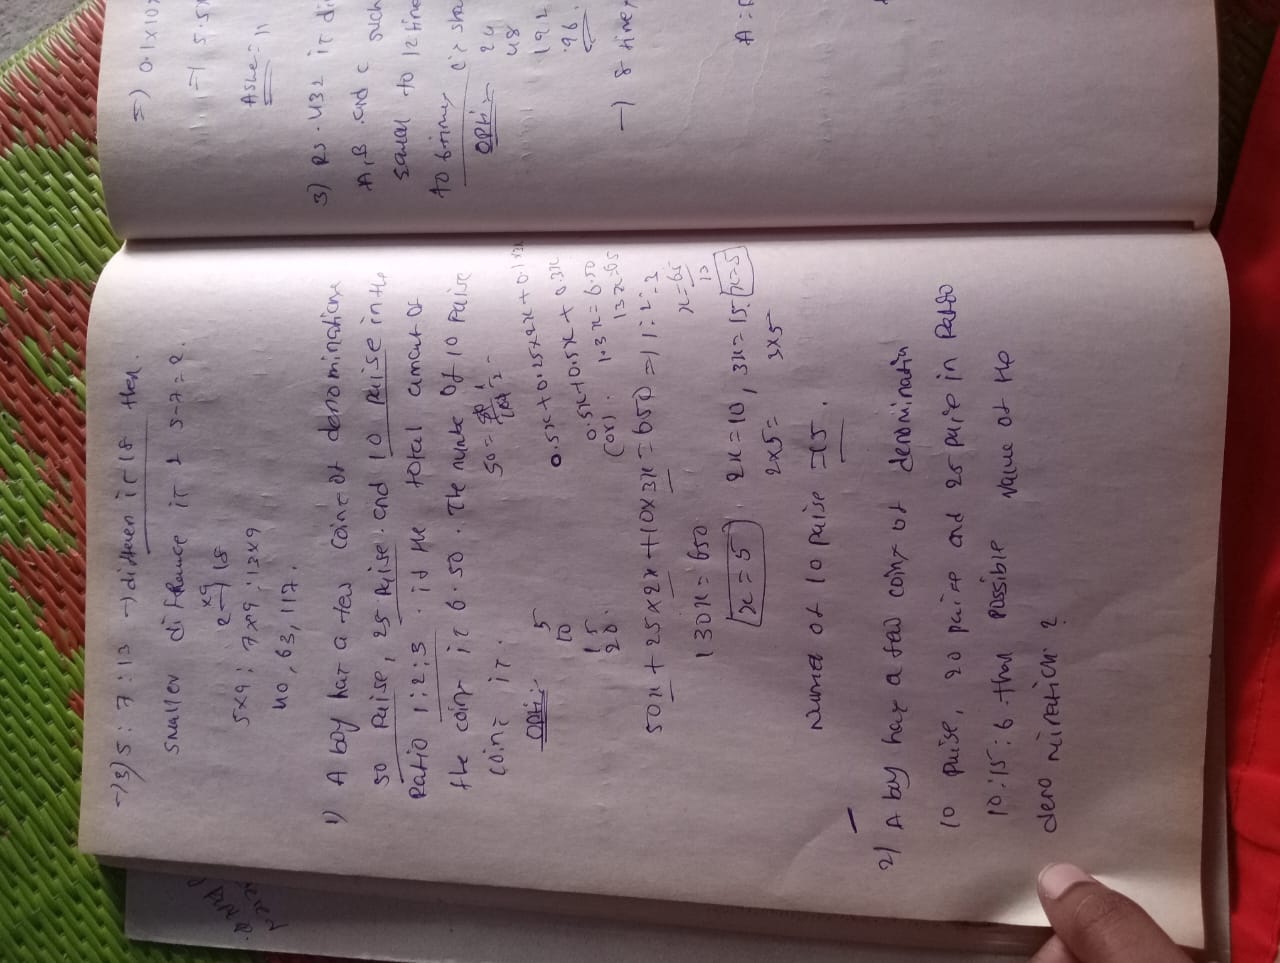 →3) 5 : 7 : 13 → differen is 18 then.
Smaller difference is 2 5-7=2.
2 ×9→ 18
5×9 : 7×9 : 13×9
40, 63, 117.
1) A boy hat a few coins of denominations
50 paise, 25 paise and 10 paise in the
Ratio 1:2:3. if the total amount of
the coins is 6.50. The numbe of 10 paise
coins is.
50 =
Opti:-
5
10
15
20.
0.5x+0.25×2x+0.1×3x
0.5x+0.5x+0.3x
(or). 1.3x=6.50
13x=65
x=65
13
x=5
50x+25×2x+10×3x=650 ⇒ 1:2:3
130x=650
x=5
2x=10, 3x=15.
2×5= 3×5
Numer of 10 paise =15.
2) A boy have a few coins of denominatin
10 paise, 20 paise and 25 paise in Ratio
10:15:6 than possible value of the
denomination?
⇒) 0.1×10
5.5
3) RS.432 is di
A,B and c such
Eaual to 12 time
to 6 times c's sha
Opti:-
24
48
192
96.
→ 8 times
A: